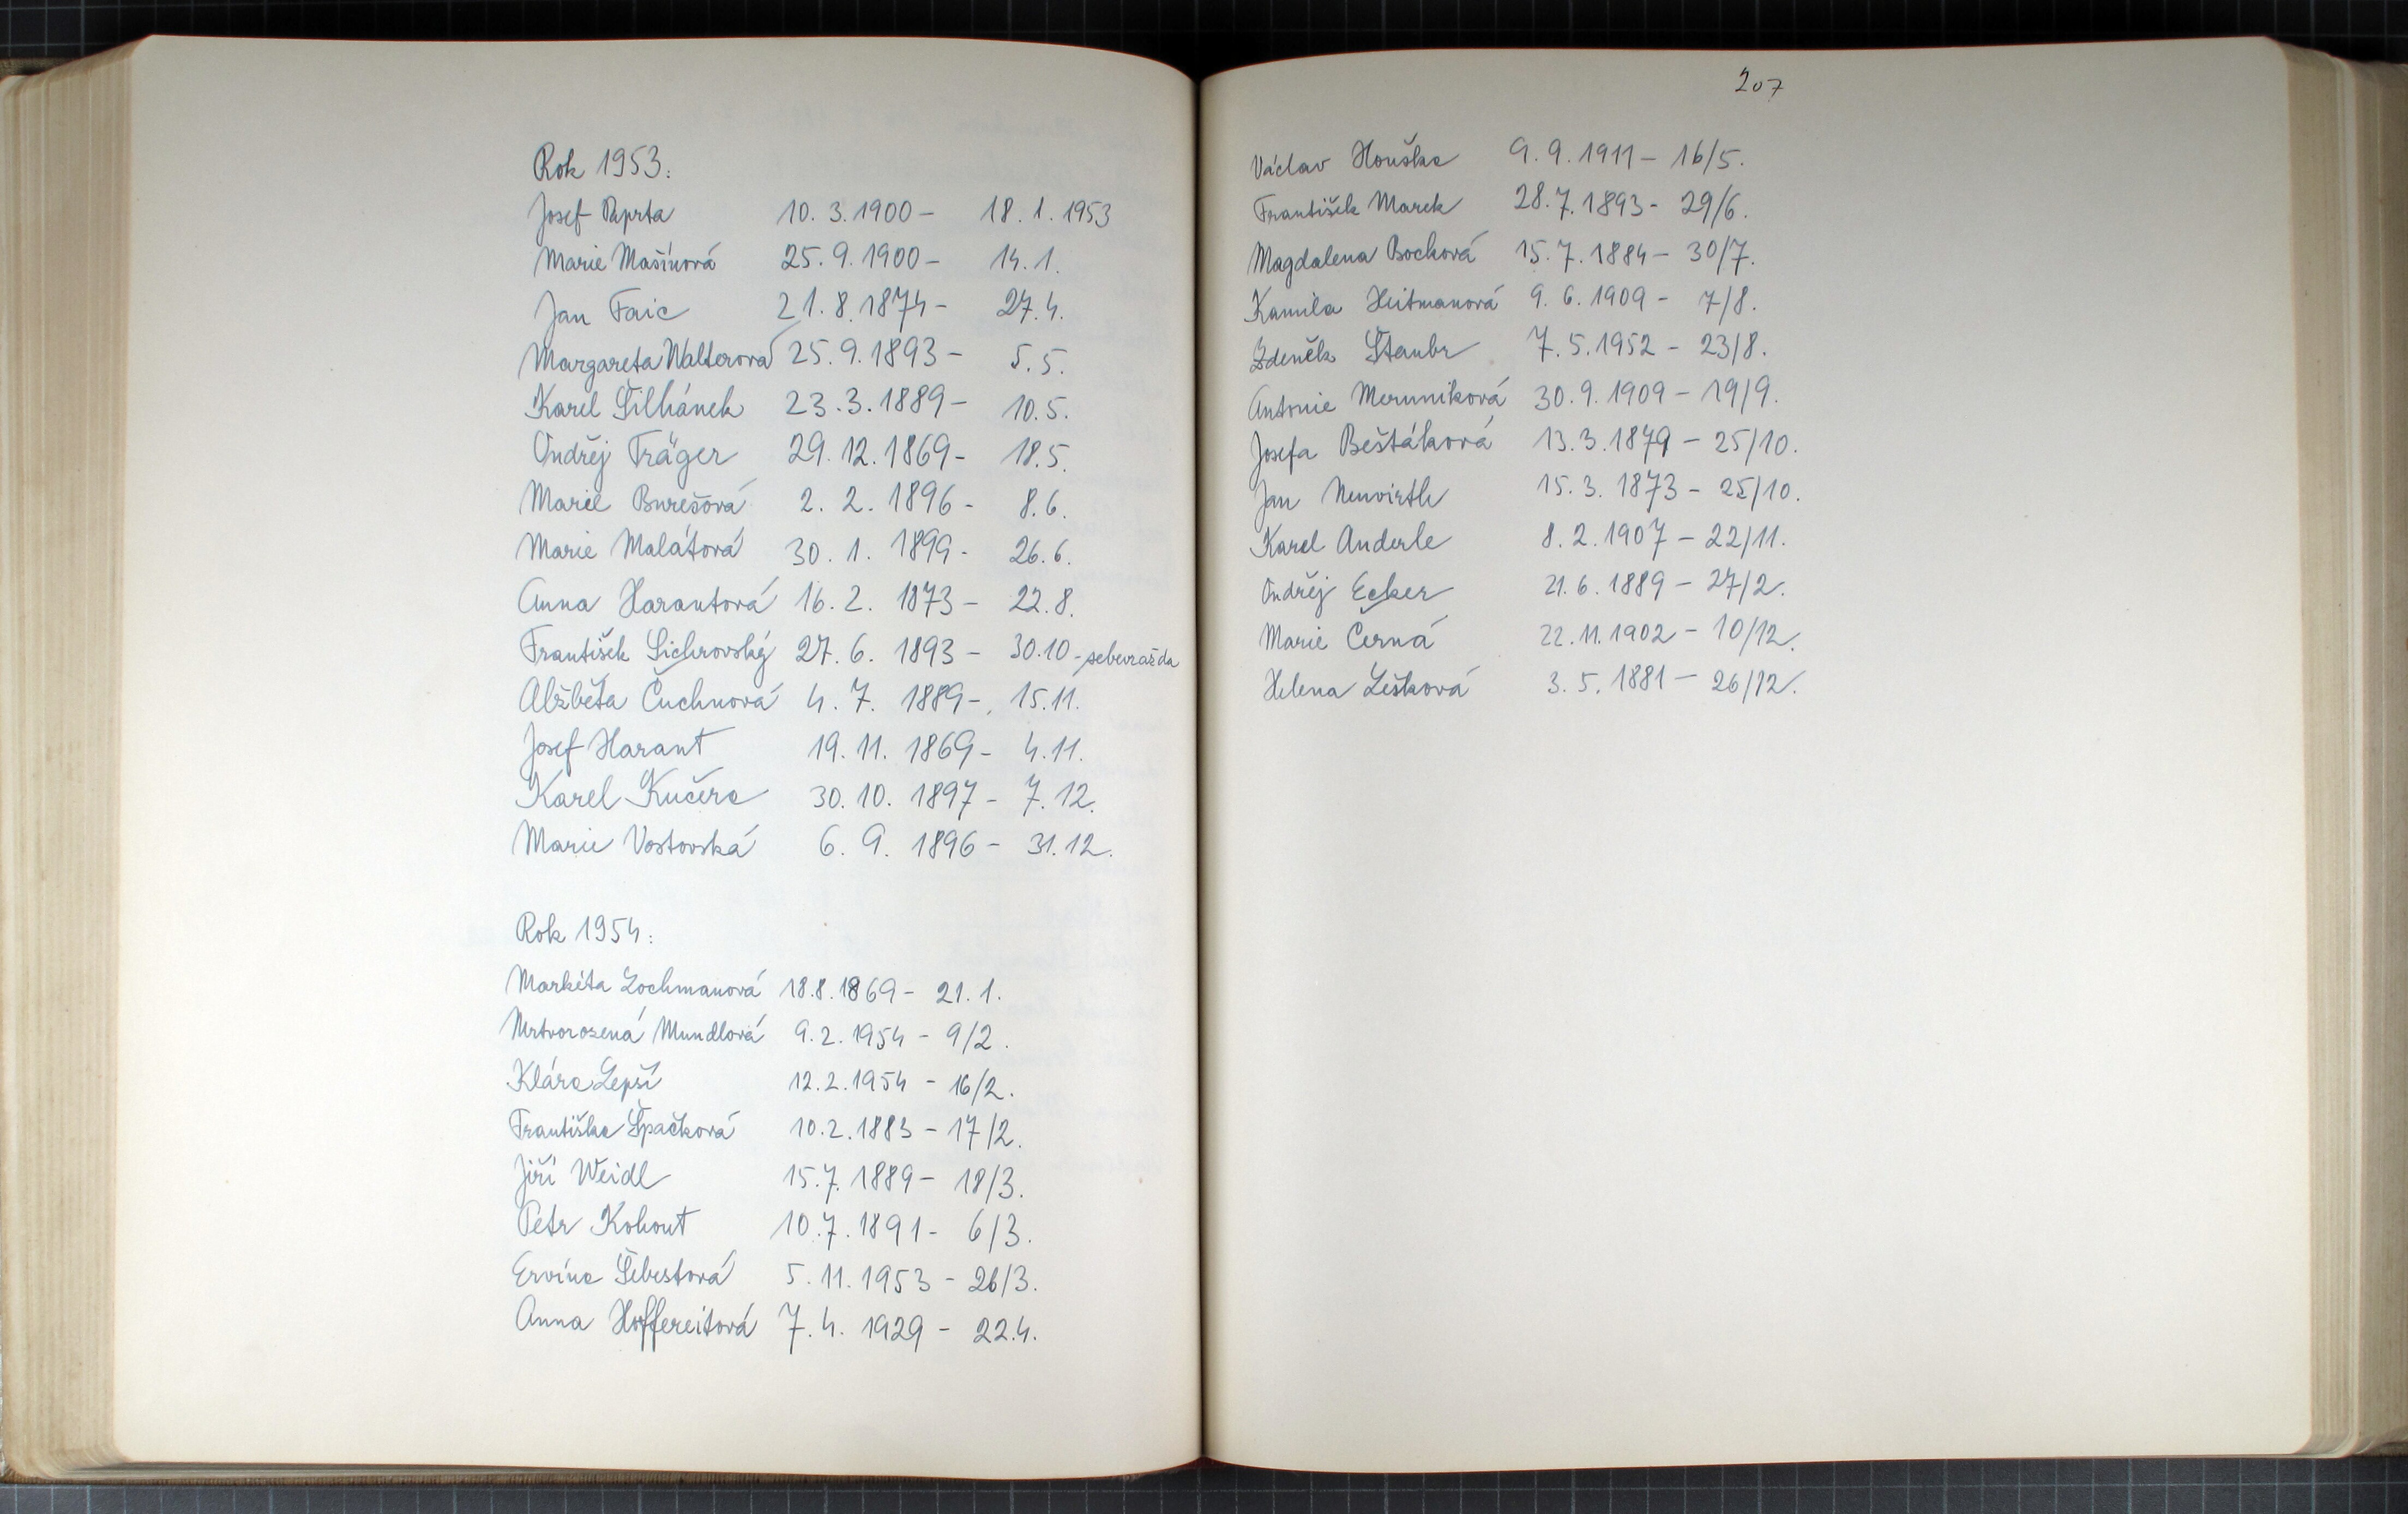 Rok 1953:
Josef Paprta 10. 3. 1900 - 18. 1. 1953
Marie Mašínová 25. 9. 1900 - 14. 1.
Jan Faic 21. 8. 1874 - 27. 4.
Margareta Walterová 25. 9. 1893 - 5. 5.
Karel Šilhánek 23. 3. 1889 - 10. 5.
Ondřej Träger 29. 12. 1869 - 18. 5.
Marie Burešová 2. 2. 1896 - 8. 6.
Marie Malátová 30. 1. 1899 - 26. 6.
Anna Harantová 16. 2. 1873 - 22. 8.
František Sichrovský 27. 6. 1893 - 30. 10 - sebevražda
Alžběta Čuchnová 4. 7. 1889 - 15. 11.
Josef Harant 19. 11. 1869 - 4. 11.
Karel Kučera 30. 10. 1897 - 7. 12.
Marie Vostovská 6. 9. 1896 - 31. 12.
Rok 1954:
Markéta Lochmanová 18. 8. 1869 - 21. 1.
Mrtvorozená Mundlová 9. 2. 1954 - 9/2.
Klára Lepší 12. 2. 1954 - 16/2.
Františka Špačková 10. 2. 1883 - 17/2.
Jiří Weidl 15. 7. 1889 - 18/3.
Petr Kohout 10. 7. 1891 - 6/3.
Ervína Šebestová 5. 11. 1953 - 26/3.
Anna Hoffereitová 7. 4. 1929 - 22. 4.
207
Václav Houška 9. 9. 1911 - 16/5.
František Marek 28. 7. 1893 - 29/6.
Magdalena Bocková 15. 7. 1884 - 30/7.
Kamila Heitmanová 9. 6. 1909 - 7/8.
Zdeněk Štaubr 7. 5. 1952 - 23/8.
Antonie Meruniková 30. 9. 1909 - 19/9.
Josefa Beštáková 13. 3. 1879 - 25/10.
Jan Neuvirth 15. 3. 1873 - 25/10.
Karel Anderle 8. 2. 1907 - 22/11.
Ondřej Ecker 21. 6. 1889 - 27/2.
Marie Černá 22. 11. 1902 - 10/12.
Helena Lešková 3. 5. 1881 - 26/12.